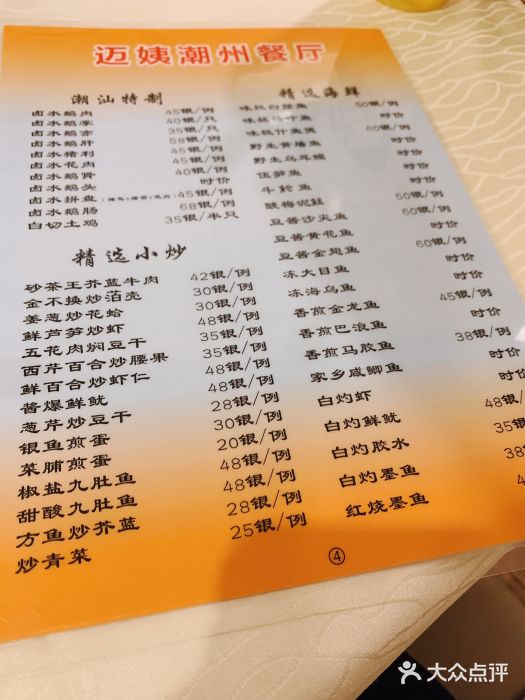 迈姨潮州餐厅
潮汕特制
卤水鹅肉 45银/例
卤水鹅掌 40银/只
卤水鹅赤 35银/只
卤水鹅肝 58银/例
卤水猪利 45银/例
卤水花肉 45银/例
卤水鹅肾 40银/例
卤水鹅头 时价
卤水拼盘 45银/例
卤水鹅肠 68银/例
白切土鸡 35银/半只
精选小炒
砂茶王芥蓝牛肉 42银/例
金不换炒泊壳 30银/例
姜葱炒花蛤 30银/例
鲜芦笋炒虾 48银/例
五花肉焖豆干 35银/例
西芹百合炒腰果 35银/例
鲜百合炒虾仁 48银/例
酱爆鲜鱿 48银/例
葱芹炒豆干 28银/例
银鱼煎蛋 30银/例
菜脯煎蛋 20银/例
椒盐九肚鱼 48银/例
甜酸九肚鱼 48银/例
方鱼炒芥蓝 28银/例
炒青菜 25银/例
精选海鲜
50银/例
时价
60银/例
野生黄墙鱼 时价
野生乌耳鳗 时价
伍笋鱼 时价
斗鲳鱼 时价
酸梅泥鯭 50银/例
豆酱沙尖鱼 时价
豆酱黄花鱼 60银/例
豆酱金翅鱼 时价
冻大目鱼 45银/例
冻海乌鱼 时价
香煎金龙鱼 38银/例
香煎巴浪鱼 时价
香煎马胶鱼 时价
家乡咸鲫鱼 48银/
白灼虾 35银
白灼鲜鱿 38
白灼胶水
白灼墨鱼
红烧墨鱼
④
大众点评